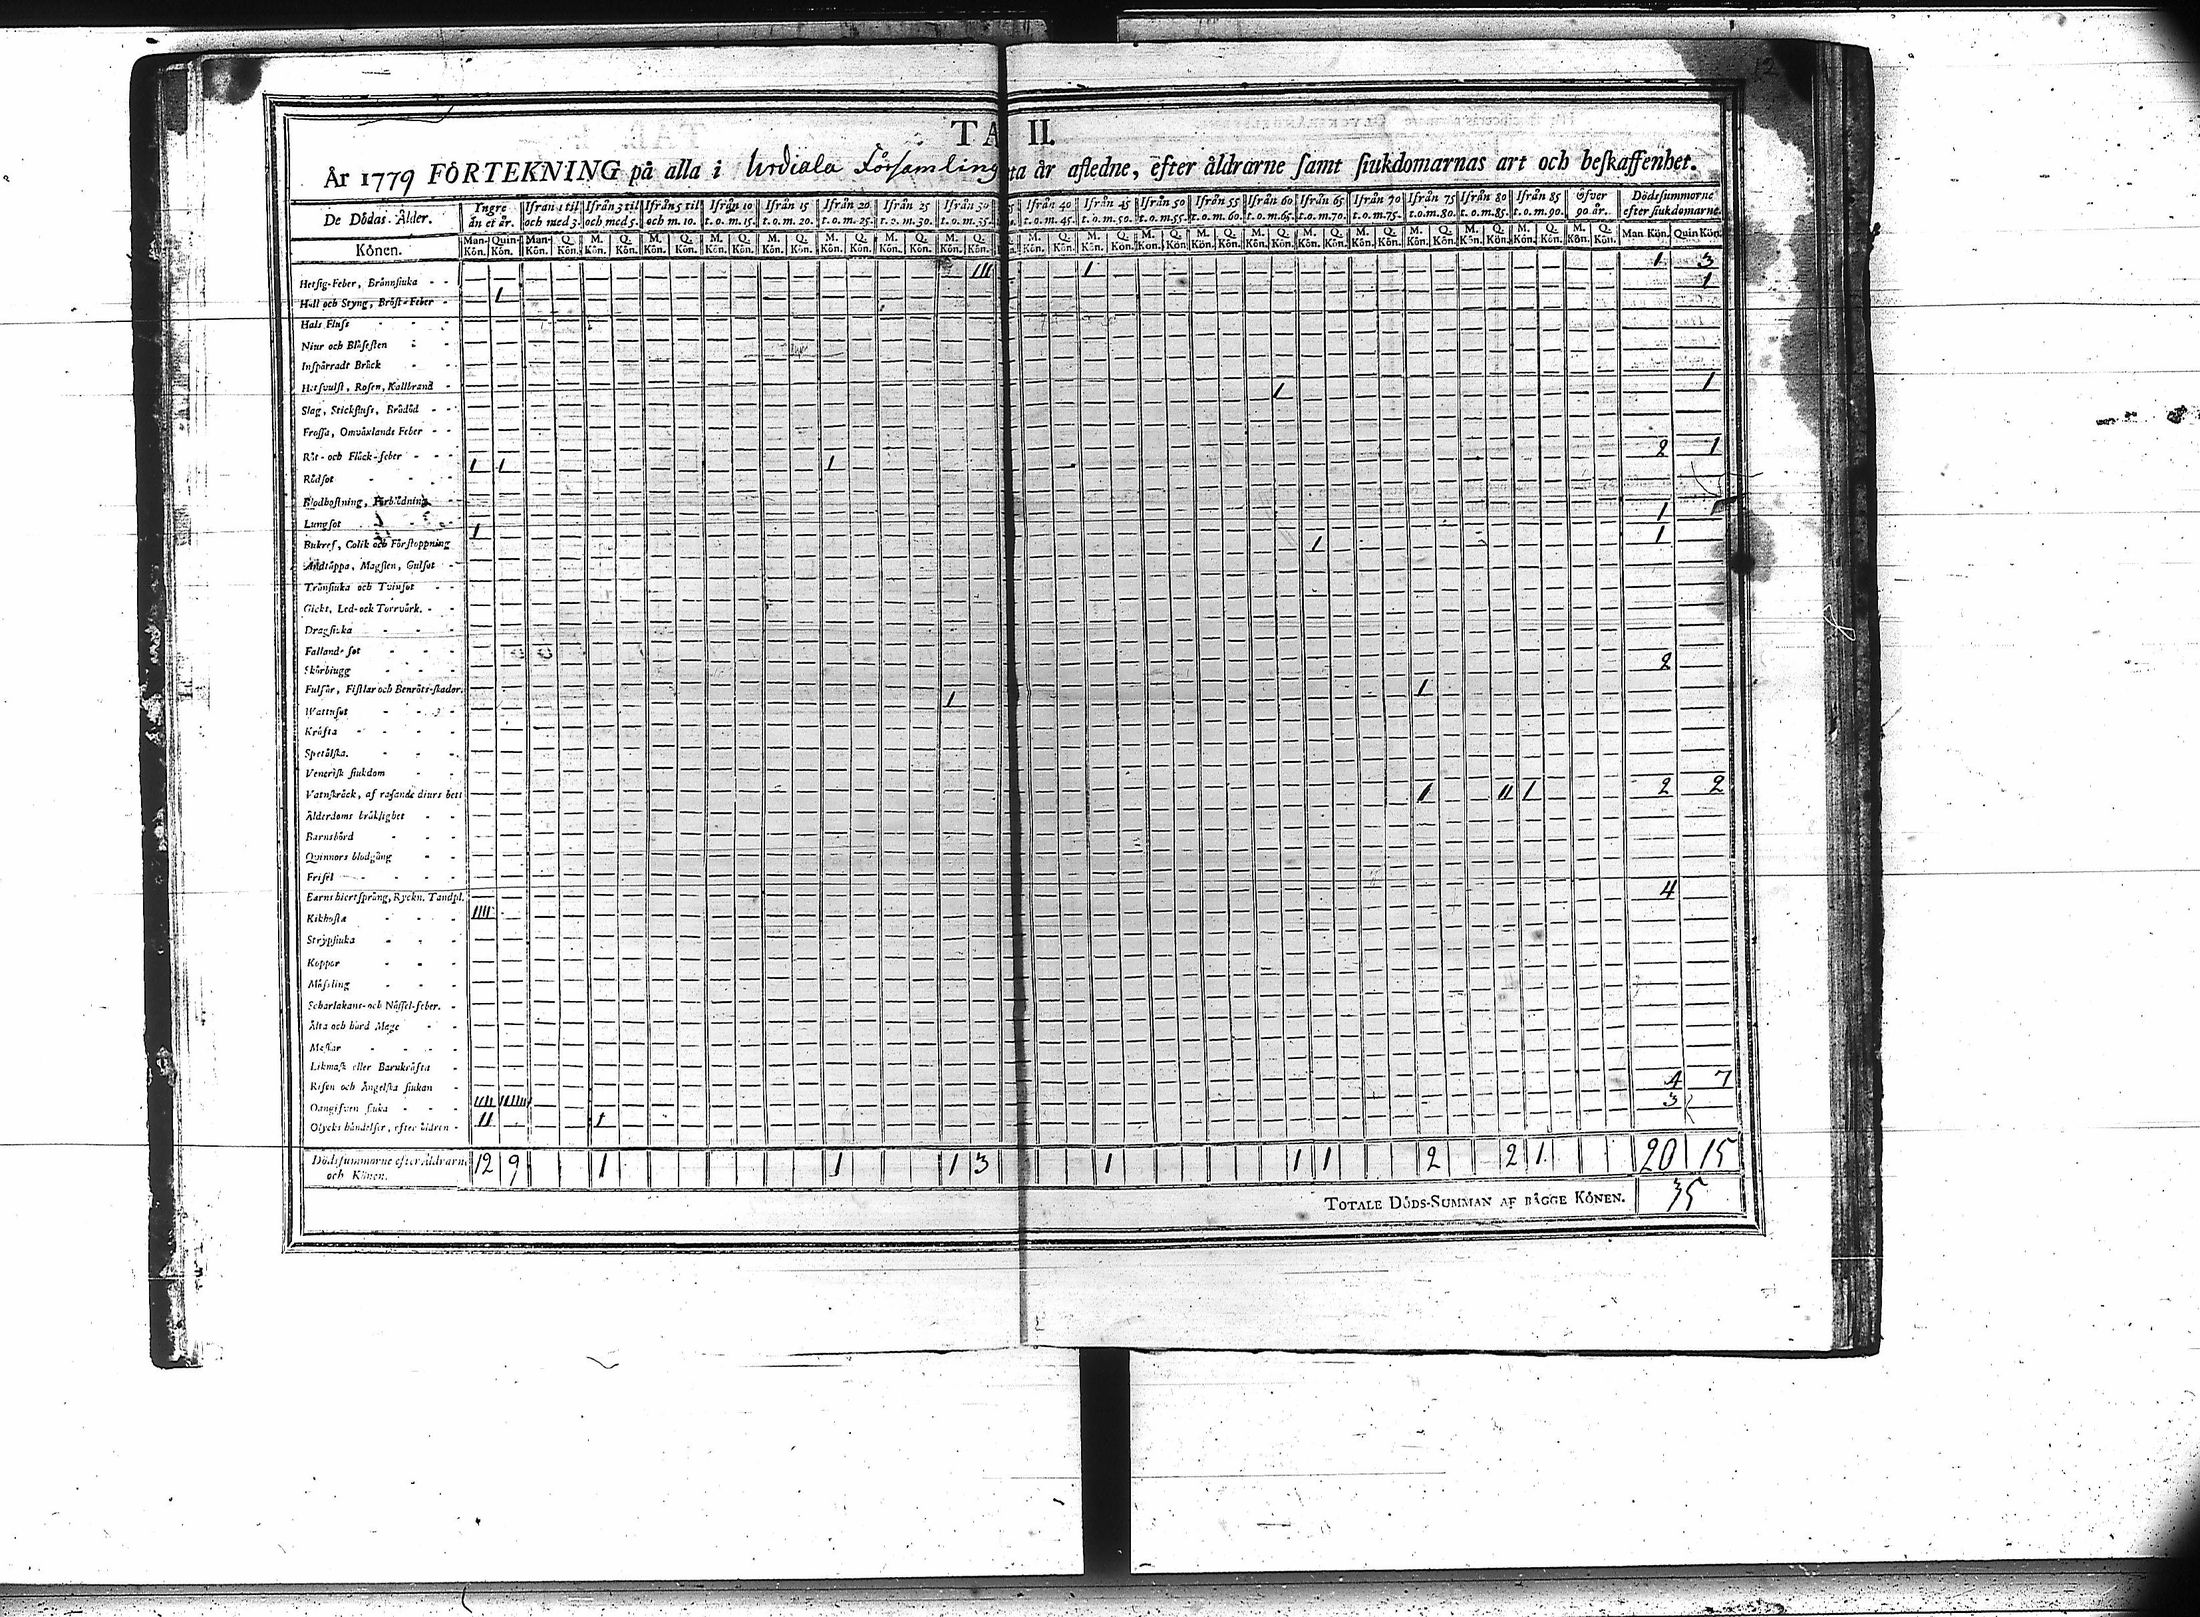 12
TA II.
År 1779 FÖRTEKNING på alla i Urdiala Församling ta år afledne, efter åldrarne samt siukdomarnas art och beskaffenhet.
De Dödas Ålder. Yngre än et år. Ifrån 1 til och med 3. Ifrån 3 til och med 5. Ifrån 5 til och m. 10. Ifrån 10 t.o.m. 15. Ifrån 15 t.o.m. 20. Ifrån 20 t.o.m. 25. Ifrån 25 t.o.m. 30. Ifrån 30 t.o.m. 35. Ifrån 40 t.o.m. 45. Ifrån 45 t.o.m. 50. Ifrån 50 t.o.m. 55. Ifrån 55 t.o.m. 60. Ifrån 60 t.o.m. 65. Ifrån 65 t.o.m. 70. Ifrån 70 t.o.m. 75. Ifrån 75 t.o.m. 80. Ifrån 80 t.o.m. 85. Ifrån 85 t.o.m. 90. Öfver 90. år. Dödssummorne efter siukdomarne.
Könen. Man-Kön. Quin-Kön. Man-Kön. Q. Kön. M. Kön. Q. Kön. M. Kön. Q. Kön. M. Kön. Q. Kön. M. Kön. Q. Kön. M. Kön. Q. Kön. M. Kön. Q. Kön. M. Kön. Q. Kön. M. Kön. Q. Kön. M. Kön. Q. Kön. M. Kön. Q. Kön. M. Kön. Q. Kön. M. Kön. Q. Kön. M. Kön. Q. Kön. M. Kön. Q. Kön. M. Kön. Q. Kön. M. Kön. Q. Kön. M. Kön. Q. Kön. M. Kön. Q. Kön. Man Kön. Quin Kön.
Hetsig-Feber, Brännsiuka III I 1 3
Håll och Styng, Bröst-Feber I 1
Hals Fluss
Niur och Blåsesten
Inspärradt Bråck
Hetsvulst, Rosen, Kallbrand
Slag, Stickfluss, Brådöd I 1
Frossa, Omväxlands Feber
Röt- och Fläck-feber
Rödsot I I I 2 1
Blodhostning, Förblödning
Lungsot I 1
Bukref, Colik och Förstoppning I 1
Andtäppa, Magsten, Gulsot
Trånsiuka och Tvinsot
Gickt, Led- ock Torrvärk.
Dragsiuka
Fallande sot
Skörbiugg
Fulsår, Fistlar och Benröts-skador.
Wattusot I I 2
Kräfta
Spetälska.
Venerisk siukdom
Vatnskräck, af rasande diurs bett
Ålderdoms bräklighet I II I 2 2
Barnsbörd
Quinnors blodgång
Frisel
Barns hiertsprång, Ryckn. Tandpl.
Kikhosta IIII 4
Strypsiuka
Koppor
Mässling
Scharlakans- och Nässel-feber.
Älta och hård Mage
Maskar
Likmask eller Barnkräfta
Risen och Ängelska siukan
Oangifven siuka IIII IIIIIII 4 7
Olycks händelser, efter åldren II I 3
Dödssummorne efter Åldrarne och Könen. 12 9 1 1 1 3 1 1 1 2 2 1 20 15
TOTALE DÖDS-SUMMAN AF BÄGGE KÖNEN. 35